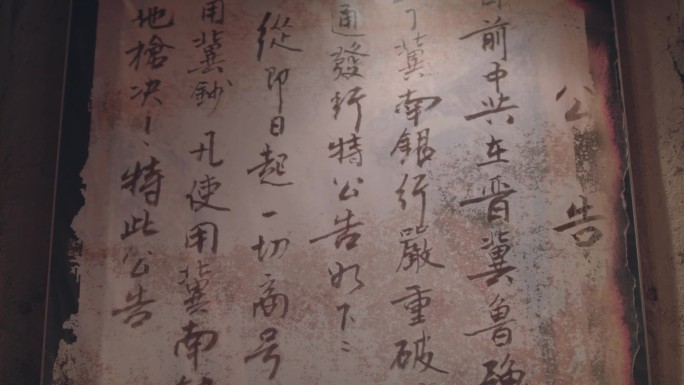 公告
前中共在晋冀魯
冀南銀行嚴重破
通發行特公告如下：
從即日起一切商号
用冀鈔凡使用冀南
地槍决！特此公告